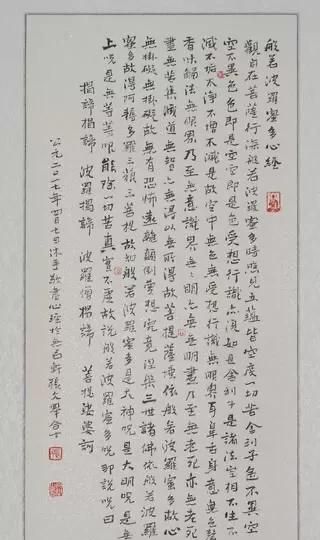 般若波羅蜜多心經
觀自在菩薩行深般若波羅蜜多時照見五蘊皆空度一切苦厄舍利子色不異空
空不異色色即是空空即是色受想行識亦復如是舍利子是諸法空相不生不
滅不垢不淨不增不減是故空中無色無受想行識無眼耳鼻舌身意無色聲
香味觸法無眼界乃至無意識界無無明亦無無明盡乃至無老死亦無老死
盡無苦集滅道無智亦無得以無所得故菩提薩埵依般若波羅蜜多故心
無掛礙無掛礙故無有恐怖遠離顛倒夢想究竟涅槃三世諸佛依般若波羅
蜜多故得阿耨多羅三藐三菩提故知般若波羅蜜多是大神呪是大明呪是無
上呪是無等等呪能除一切苦真實不虛故說般若波羅蜜多呪即說呪曰
揭諦揭諦 波羅揭諦 波羅僧揭諦 菩提薩婆訶
公元二〇 年四月七日沐手敬書心經於 軒張 合十